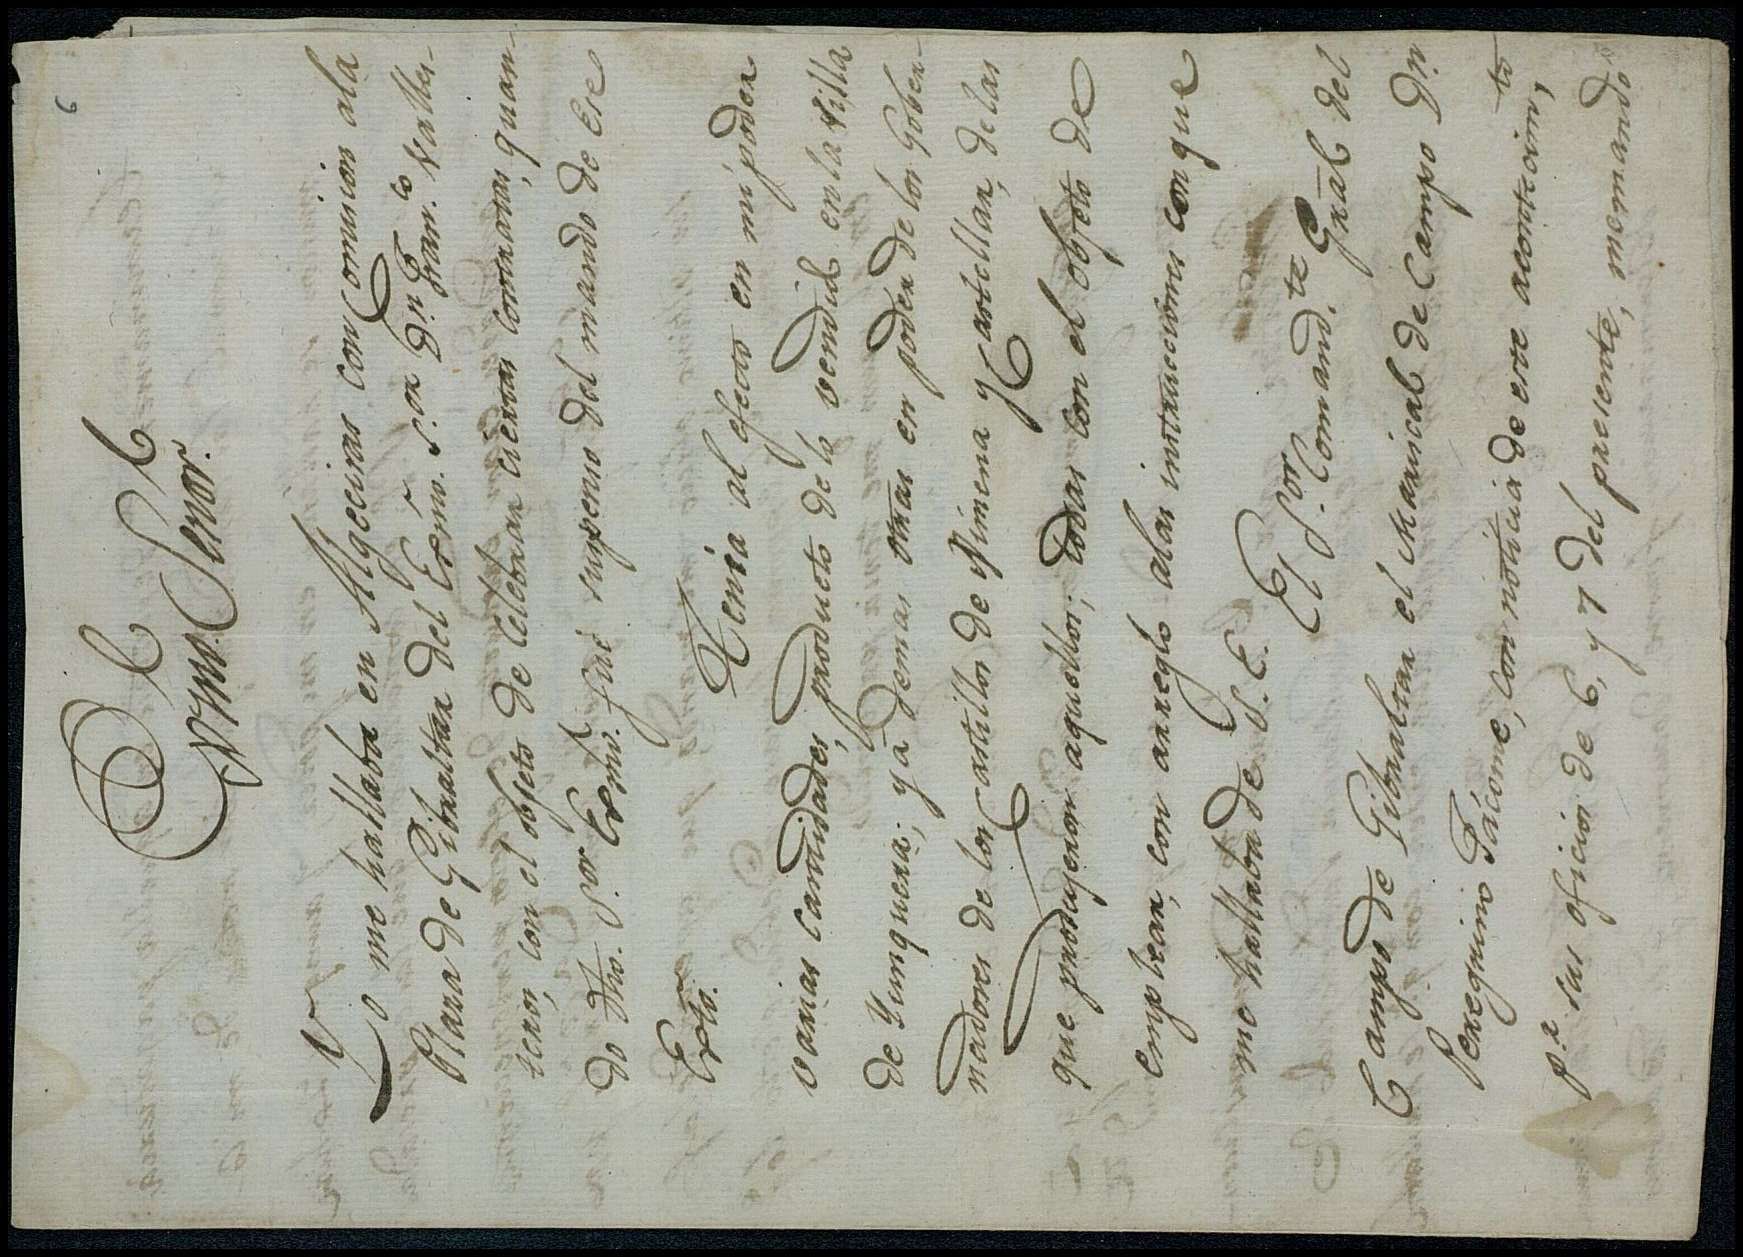 6
Exmo. Señor.
Yo me hallaba en Algeciras con Comision ala
Plaza de Gibraltar del Exmo. S.or Dn. Fran.co Valles-
teros, con el objeto de Celebrar ciertas contratas, quan-
do dho. S.or Exmo. fué suspenso del mando de Ese
Exto.
Tenia al efecto en mi poder
varias cantidades, producto de la vendida en la Villa
de Yunquera; y á demas otras en poder de los Gober-
nadores de los Castillos de Ximena y Castellar, de las
que produxeron aquellos; todas con el objeto de
emplear, con arreglo alas instrucciones con que
me hallaba de S.E.
El S.or Comand.te Gral del
Campo de Gibraltar el Mariscal de Campo Dn.
Peregrino Jácome, con noticia de este acontecim,to
p.r sus oficios de 6, y 7 del presente, me mandó